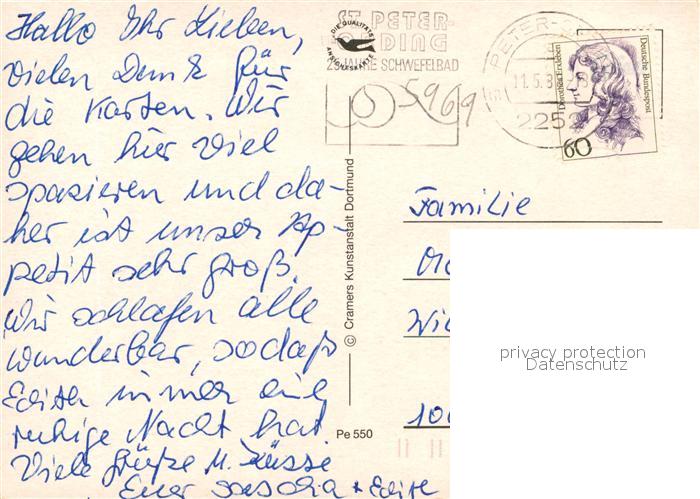 Hallo Ihr Lieben,
vielen Dank für
die Karten. Wir
gehen hier viel
spazieren und da-
her ist unser Ap-
petit sehr groß.
Wir schlafen alle
wunderbar, sodaß
Edith immer eine
ruhige Nacht hat.
Viele Grüße u. Küsse
Euer Sascha + Edith
DIE QUALITÄTS
ANSICHTSKARTE
ST. PETER-
ORDING
25 JAHRE SCHWEFELBAD
PETER-O
11.5.8
2252
5969
Dorothea Erxleben
Deutsche Bundespost
60
© Cramers Kunstanstalt Dortmund
Pe 550
Familie
Wil
10
privacy protection
Datenschutz